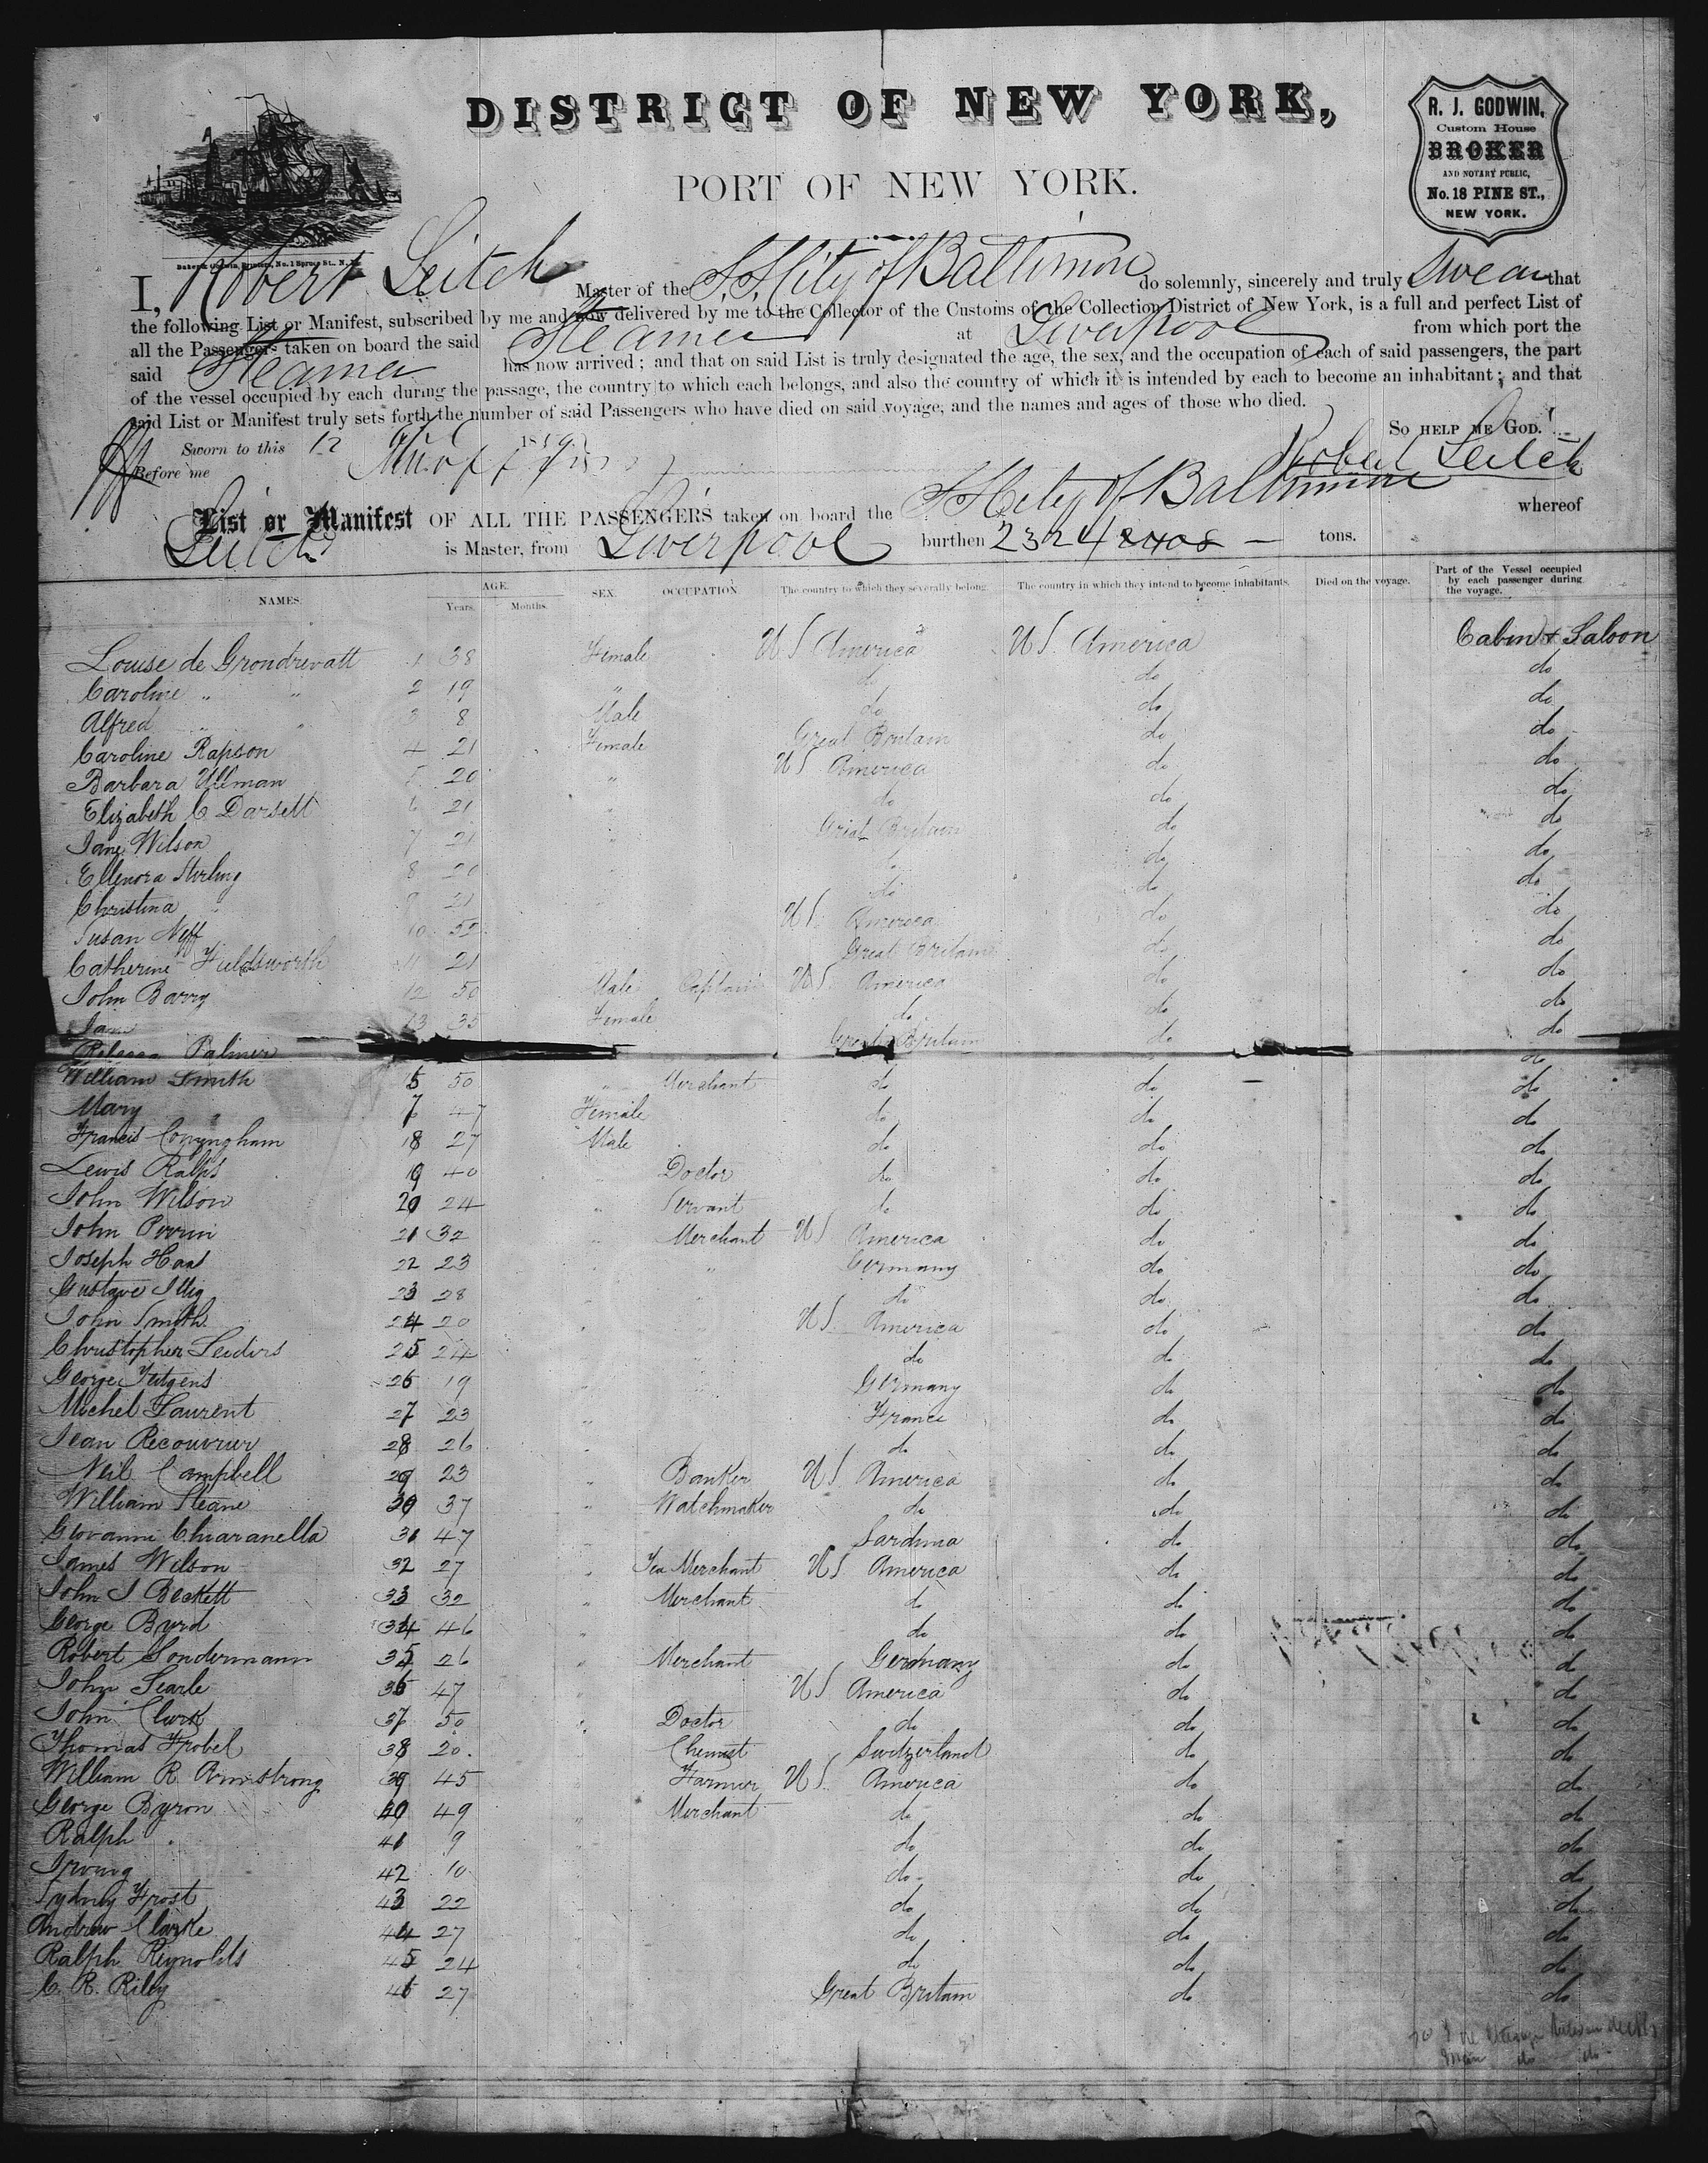 DISTRICT OF NEW YORK,
PORT OF NEW YORK.
R. J. GODWIN,
Custom House
BROKER
AND NOTARY PUBLIC,
No. 18 PINE ST.,
NEW YORK.
Baker & Godwin, Printers, No. 1 Spruce St., N.Y.
I, Robert Leitch Master of the S.S. City of Baltimore do solemnly, sincerely and truly swear that
the following List or Manifest, subscribed by me and now delivered by me to the Collector of the Customs of the Collection District of New York, is a full and perfect List of
all the Passengers taken on board the said Steamer at Liverpool from which port the
said Steamer has now arrived; and that on said List is truly designated the age, the sex, and the occupation of each of said passengers, the part
of the vessel occupied by each during the passage, the country to which each belongs, and also the country of which it is intended by each to become an inhabitant; and that
said List or Manifest truly sets forth the number of said Passengers who have died on said voyage, and the names and ages of those who died.
Sworn to this 12 1859 So HELP ME GOD.
Before me Robert Leitch
List or Manifest OF ALL THE PASSENGERS taken on board the S S City of Baltimore whereof
Leitch is Master, from Liverpool burthen 2324 2408 tons.
NAMES. AGE. Years. Months. SEX. OCCUPATION. The country to which they severally belong. The country in which they intend to become inhabitants. Died on the voyage. Part of the Vessel occupied by each passenger during the voyage.
Louise de Grondrevatt 1 38 Female U S America U S. America Cabin & Saloon
Caroline " " 2 19 " do do do
Alfred " " 3 8 Male do do do
Caroline Rapson 4 21 Female Great Britain do do
Barbara Ullman 5 20 " U S America do do
Elizabeth C Darsett 6 21 " do do do
Jane Wilson 7 21 " Great Britain do do
Ellenora Stirling 8 20 do do
Christina 9 21 do do do
Susan Neff 10 U S. America do do
Catherine Fieldsworth 11 21 Great Britain do do
John Barry 12 50 Male Captain U S. America do do
Jane 13 35 Female do do do
Rebecca Palmer Great Britain do do
William Smith 15 50 " Merchant do do do
Mary 7 47 Female do do do
Francis Conyngham 18 27 Male do do do
Lewis Ralfs 19 40 " Doctor do do do
John Wilson 20 24 " Servant do do do
John Perrin 21 32 " Merchant U S America do do
Joseph Haas 22 23 " " Germany do do
Gustave Illig 23 28 " " do do do
John Smith 24 20 " " U S. America do do
Christopher Seiders 25 24 " do do do
George Jutgens 26 19 " Germany do do
Michel Laurent 27 23 " France do do
Jean Recouvreur 28 26 " do do do
Neil Campbell 29 23 " Banker U S America do do
William Sloane 30 37 " Watchmaker do do do
Giovanni Chiaranella 31 47 " Sardinia do do
James Wilson 32 27 " Tea Merchant U S America do do
John J Beckett 33 32 " Merchant do do do
George Byrd 34 46 " do do do
Robert Sondermann 35 26 " Merchant Germany do do
John Searle 36 47 " U S. America do do
John Clark 37 50 " Doctor do do do
Thomas Frobel 38 20 " Chemist Switzerland do do
William R Armstrong 39 45 " Farmer U S. America do do
George Byron 40 49 " Merchant do do do
Ralph 41 9 " do do do
Irving 42 10 do do do
Sydney Frost 43 22 do do do
Andrew Clarke 44 27 do do do
Ralph Reynolds 45 24 do do do
C. R. Riley 46 27 Great Britain do do